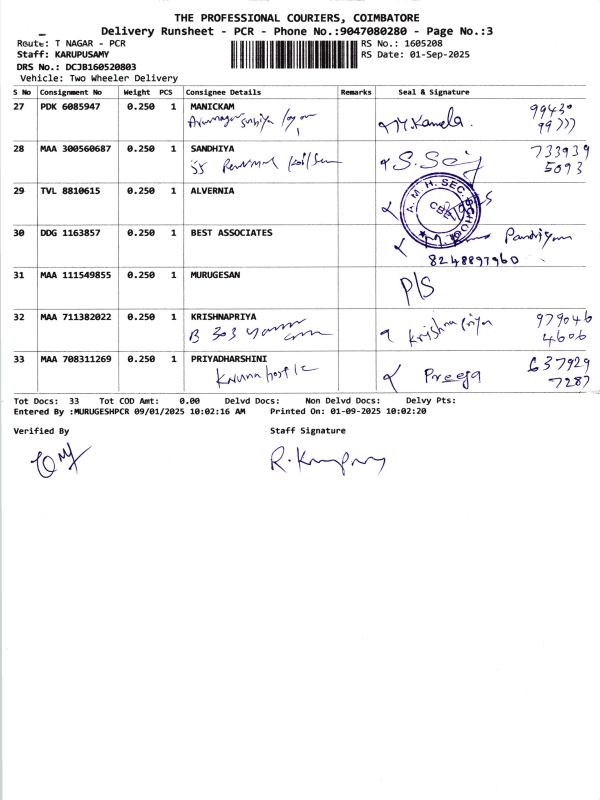 THE PROFESSIONAL COURIERS, COIMBATORE
Delivery Runsheet - PCR - Phone No.:9047080280 - Page No.:3
Route: T NAGAR - PCR
RS No.: 1605208
Staff: KARUPUSAMY
RS Date: 01-Sep-2025
DRS No.: DCJB160520803
Vehicle: Two Wheeler Delivery
S No Consignment No Weight PCS Consignee Details Remarks Seal & Signature
27 PDK 6085947 0.250 1 MANICKAM
M.Kamela. 99430
28 MAA 300560687 0.250 1 SANDHIYA 733939
55 5093
29 TVL 8810615 0.250 1 ALVERNIA
A. M. H. SEC. SCHOOL
30 DDG 1163857 0.250 1 BEST ASSOCIATES
Pandiyan
8248897960
31 MAA 111549855 0.250 1 MURUGESAN
P/S
32 MAA 711382022 0.250 1 KRISHNAPRIYA 979046
B 303 Krishna priya 4606
33 MAA 708311269 0.250 1 PRIYADHARSHINI 637929
Preeja 7287
Tot Docs: 33 Tot COD Amt: 0.00 Delvd Docs: Non Delvd Docs: Delvy Pts:
Entered By :MURUGESHPCR 09/01/2025 10:02:16 AM Printed On: 01-09-2025 10:02:20
Verified By Staff Signature